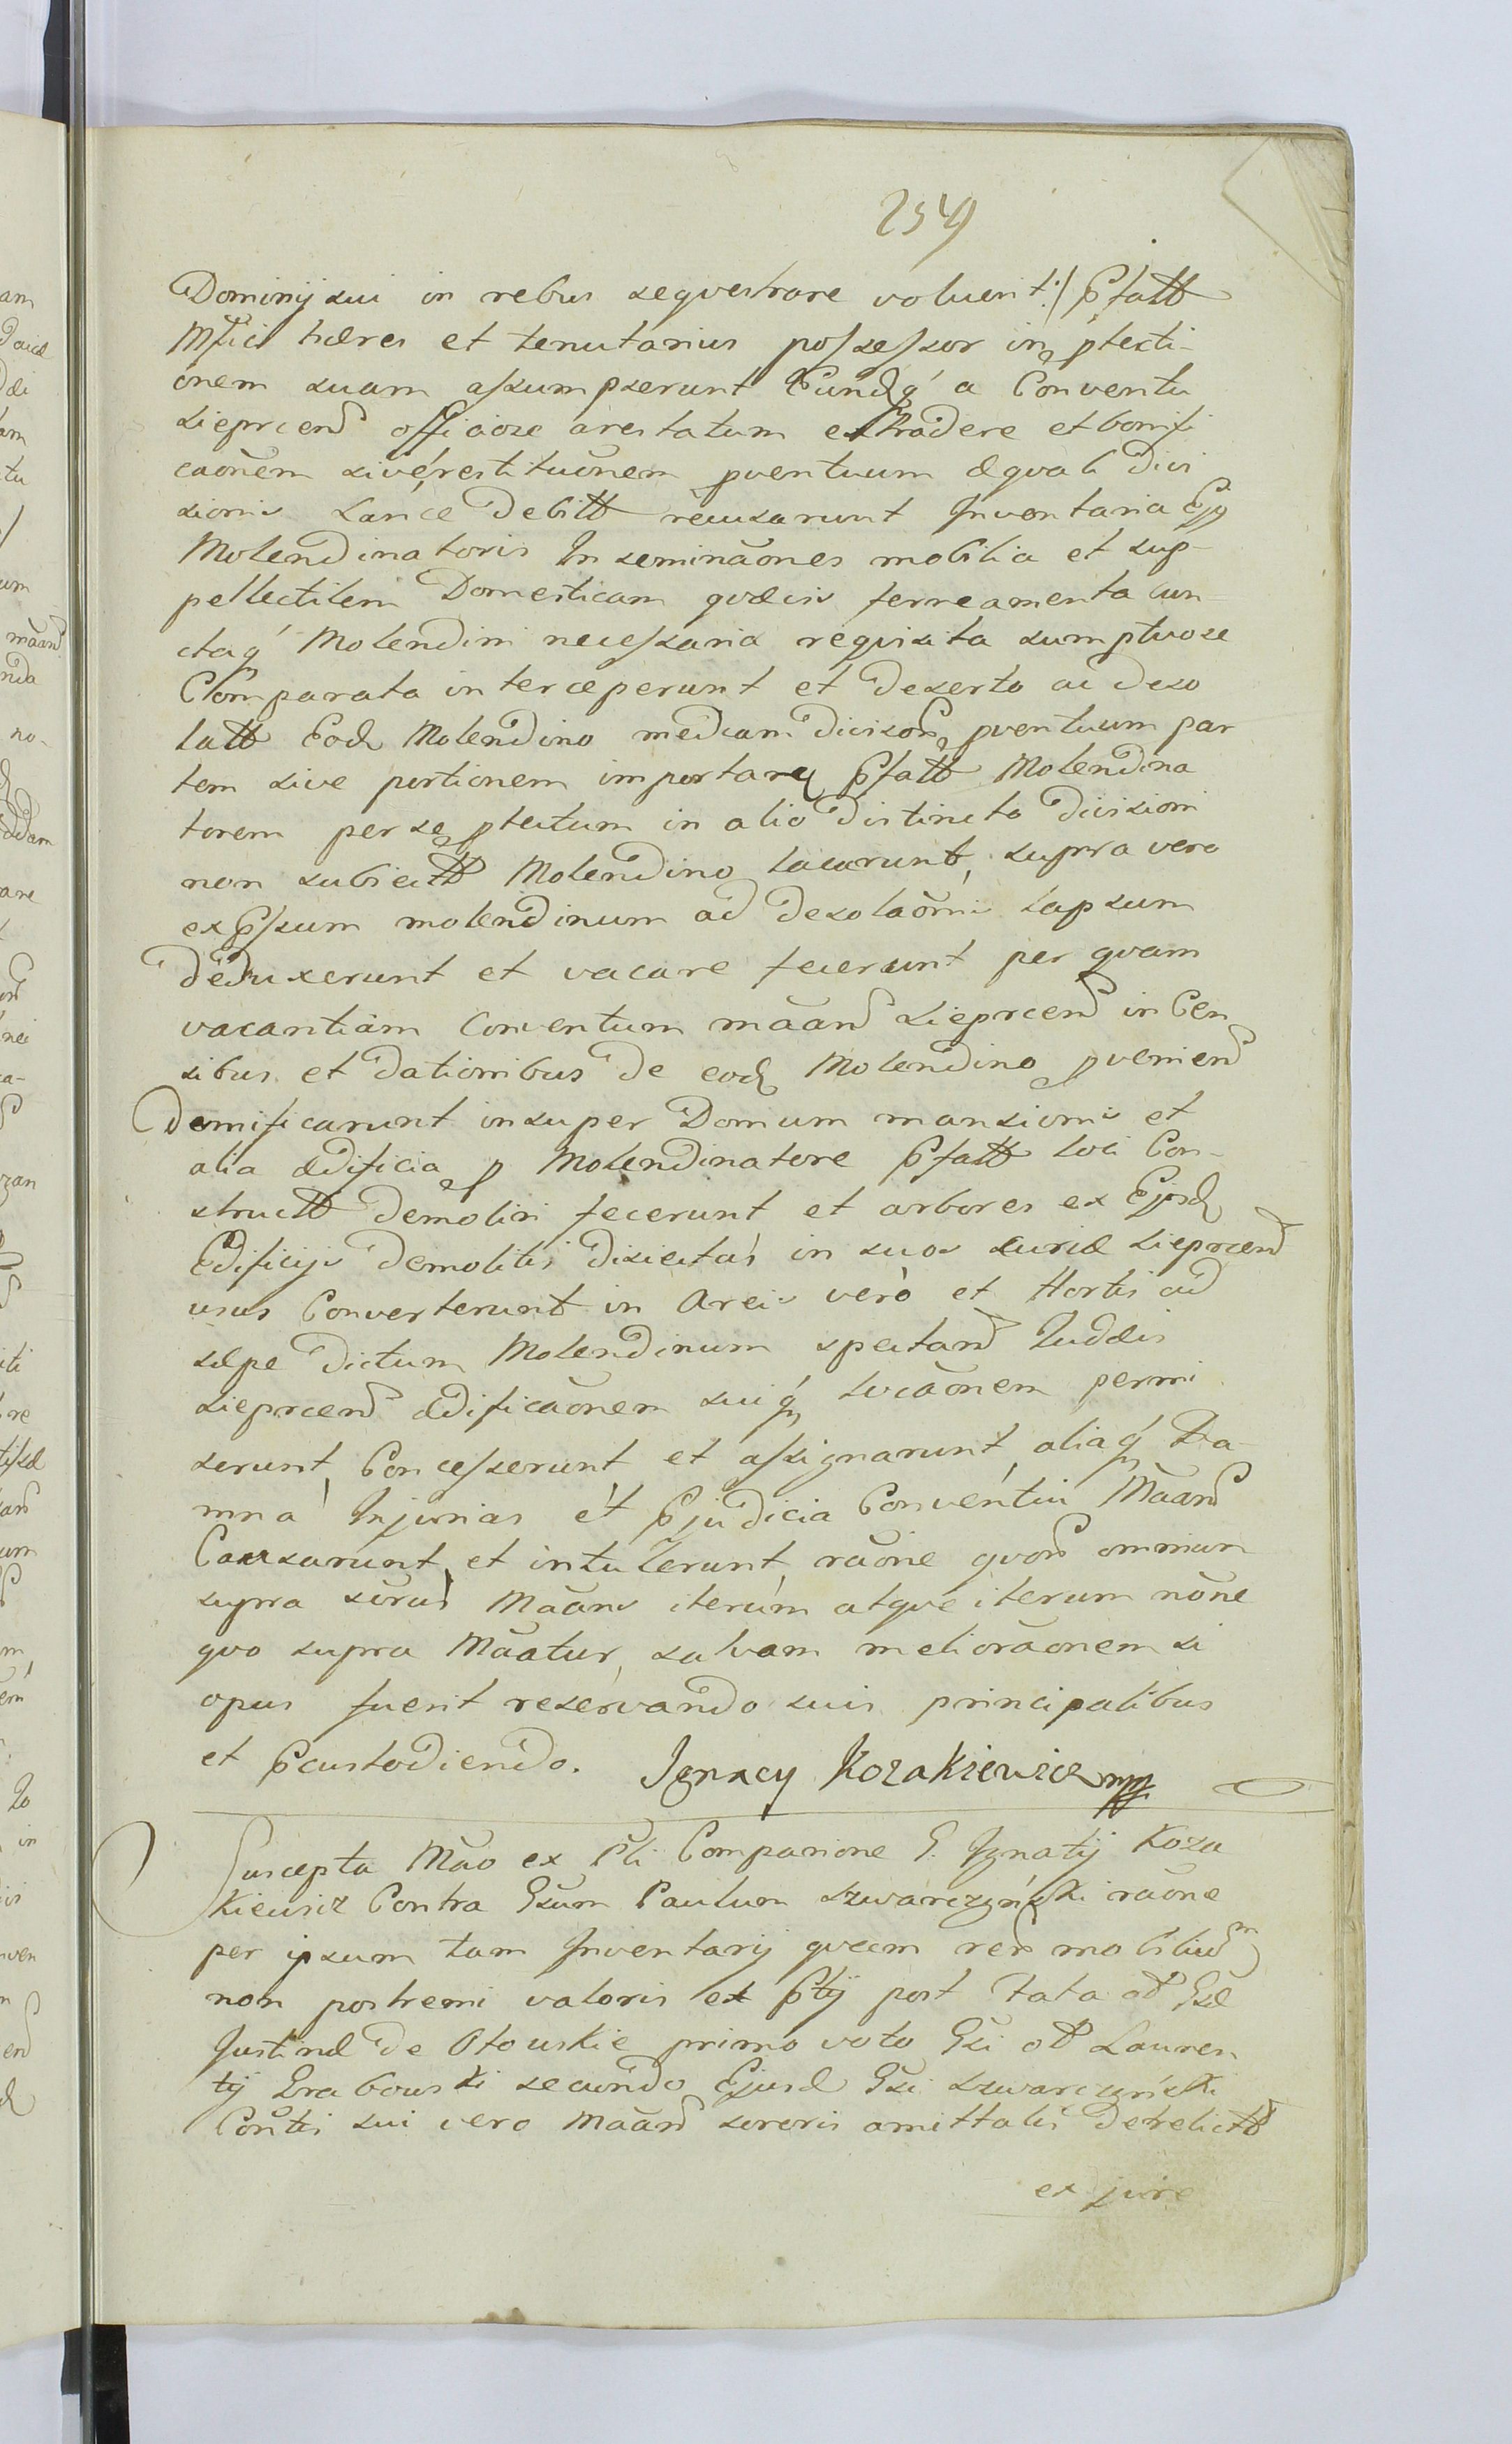 259
Dominij sui in rebus seqvestrare voluerit:/ Pfatt
Mfici hæres et tenutarius possessor in ptecti-
onem suam assumpserunt Eundq́ a Conventu
Sieprcens officiose arestatum extradere et bonifi
caōnem sivé restituōnem pventuum æqvali divi
sionis Lance debitt recusarunt Inventaria Ejq
Molendinatoris Inseminaōnes mobilia et sup-
pellectilem Domesticam qvævis ferreamenta cun-
ctaq́ Molendini necessaria reqvisita sumptuose
Comparata interceperunt et deserto ac deso
latt Eod Molendino mediam divison pventuum par
tem sive portionem importare Pfatt Molendina
torem per se ptectum in alio distincto divisioni
non subiectt Molendino locarunt, supra vero
expssum molendinum ad desolaōnis lapsum
deduxerunt et vacare fecerunt per qvam
vacantiam Conventum māans Sieprcens in Cen
sibus et dationibus de eod Molendino pveniend
Damificarunt insuper Domum mansionis et
alia ædificia p Molendinatore Pfatt loci Con-
structt demoliri fecerunt et arbores ex Ejusd
Edificijs demolitis disiectas in suos curiæ Sieprcens
usus Converterunt in Areis verò et Hortis ad
sæpe dictum Molendinum spectand Judæis
Sieprcens ædificaōnem suiq́ locaōnem permi
serunt, Concesserunt et assignarunt, aliaq́ Da-
mna Injurias et Pjudicia Conventui Māans
Causarunt, et intulerunt, raōne qvor omnium
supra scrus Māans iterum atqve iterum nōne
qvo supra Māatur, salvam melioraōnem si
opus fuerit reservando suis principalibus
et Pcustodiendo. Ignacy Kozakiewicz mp
Suscepta Māo ex Pti Comparione G. Ignatij Koza
kiewicz Contra Gsum Paulum Szwarczyński raōne
per ipsum tam Inventarij qvam rer mobilium
non postremi valoris ex Ptij post fata ol Gsæ
Justinæ de Otouskie primo voto Gsi ol Lauren
tij Grabowski secundo Ejusd Gsi Szwarczyński
Contis sui vero Māans sororis amittalis derelictt
ex jure